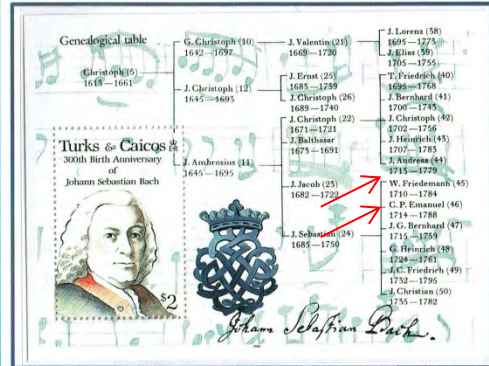 Genealogical table
Christoph (5)
1613 — 1661
G. Christoph (10)
1642 — 1697
J. Christoph (12)
1645 — 1693
J. Ambrosius (11)
1645 — 1695
J. Valentin (21)
1669 — 1720
J. Ernst (25)
1683 — 1739
J. Christoph (26)
1689 — 1740
J. Christoph (22)
1671 — 1721
J. Balthasar
1673 — 1691
J. Jacob (23)
1682 — 1722
J. Sebastian (24)
1685 — 1750
J. Lorenz (38)
1695 — 1773
J. Elias (39)
1705 — 1755
T. Friedrich (40)
1695 — 1768
J. Bernhard (41)
1700 — 1743
J. Christoph (42)
1702 — 1756
J. Heinrich (43)
1707 — 1783
J. Andreas (44)
1713 — 1779
W. Friedemann (45)
1710 — 1784
C. P. Emanuel (46)
1714 — 1788
J. G. Bernhard (47)
1715 — 1739
G. Heinrich (48)
1724 — 1761
J. C. Friedrich (49)
1732 — 1795
J. Christian (50)
1735 — 1782
Turks & Caicos
300th Birth Anniversary
of
Johann Sebastian Bach
$2
Johann Sebastian Bach.